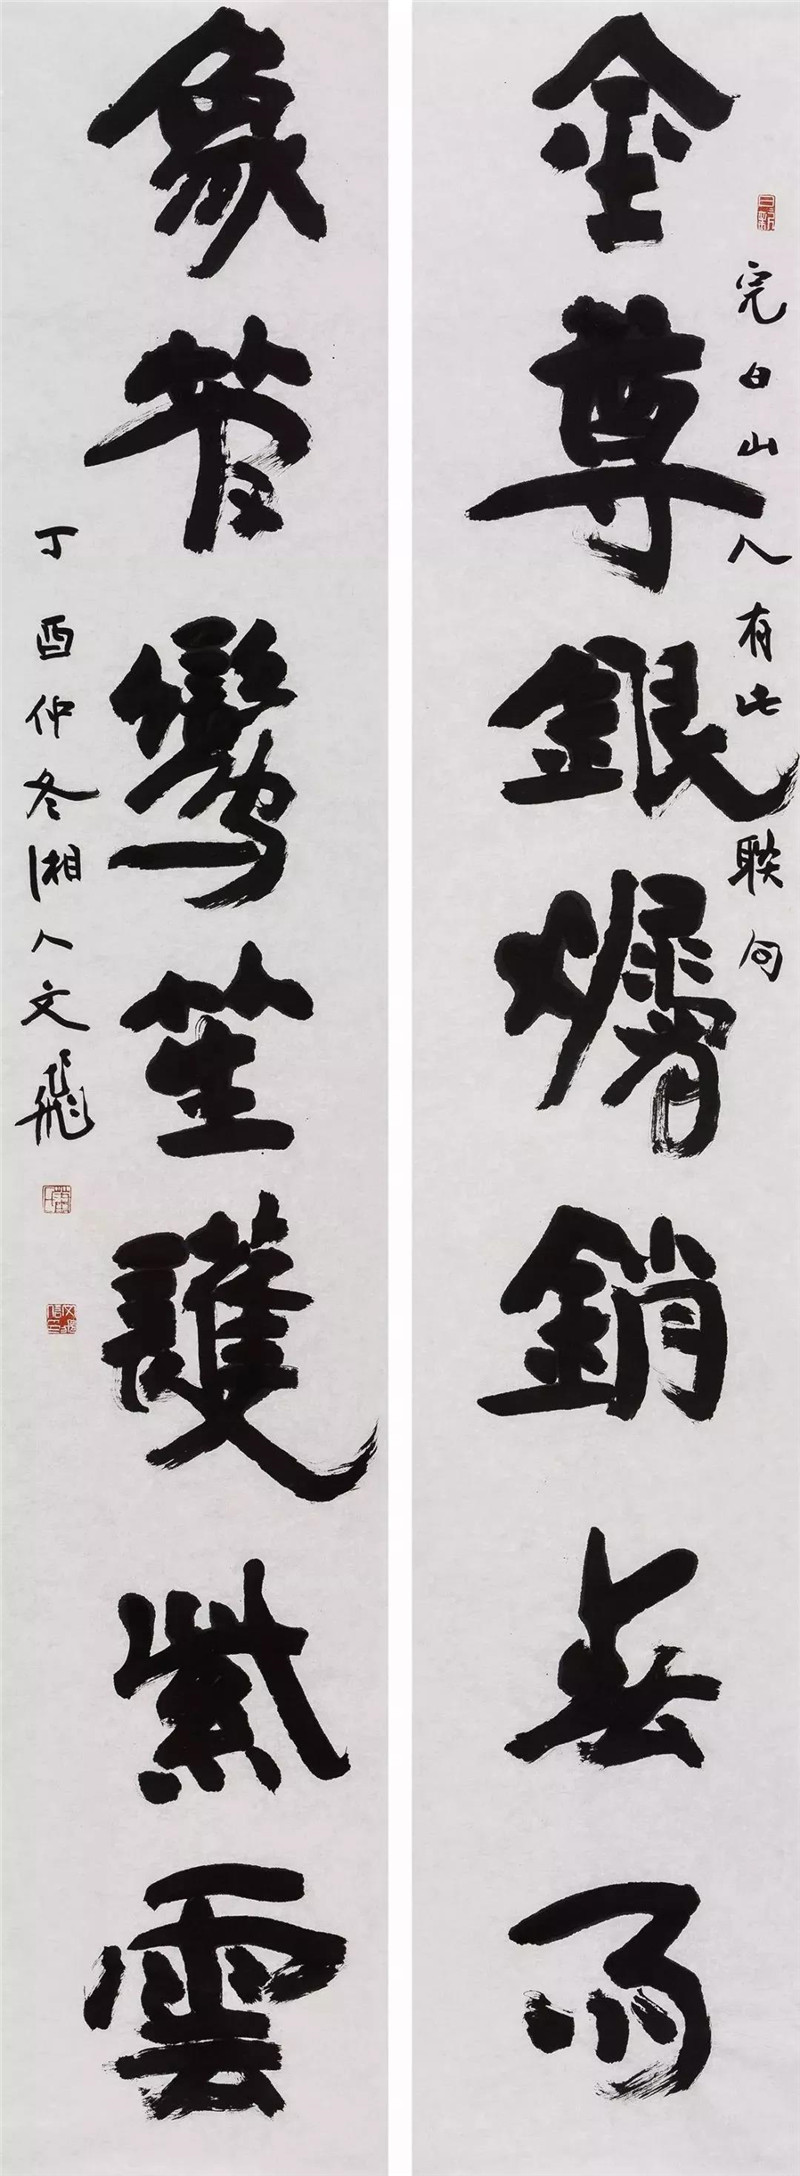 日新
金尊銀爥銷春雨
完白山人有此聯句
象管鸞笙護紫雲
丁酉仲冬湘人文飛